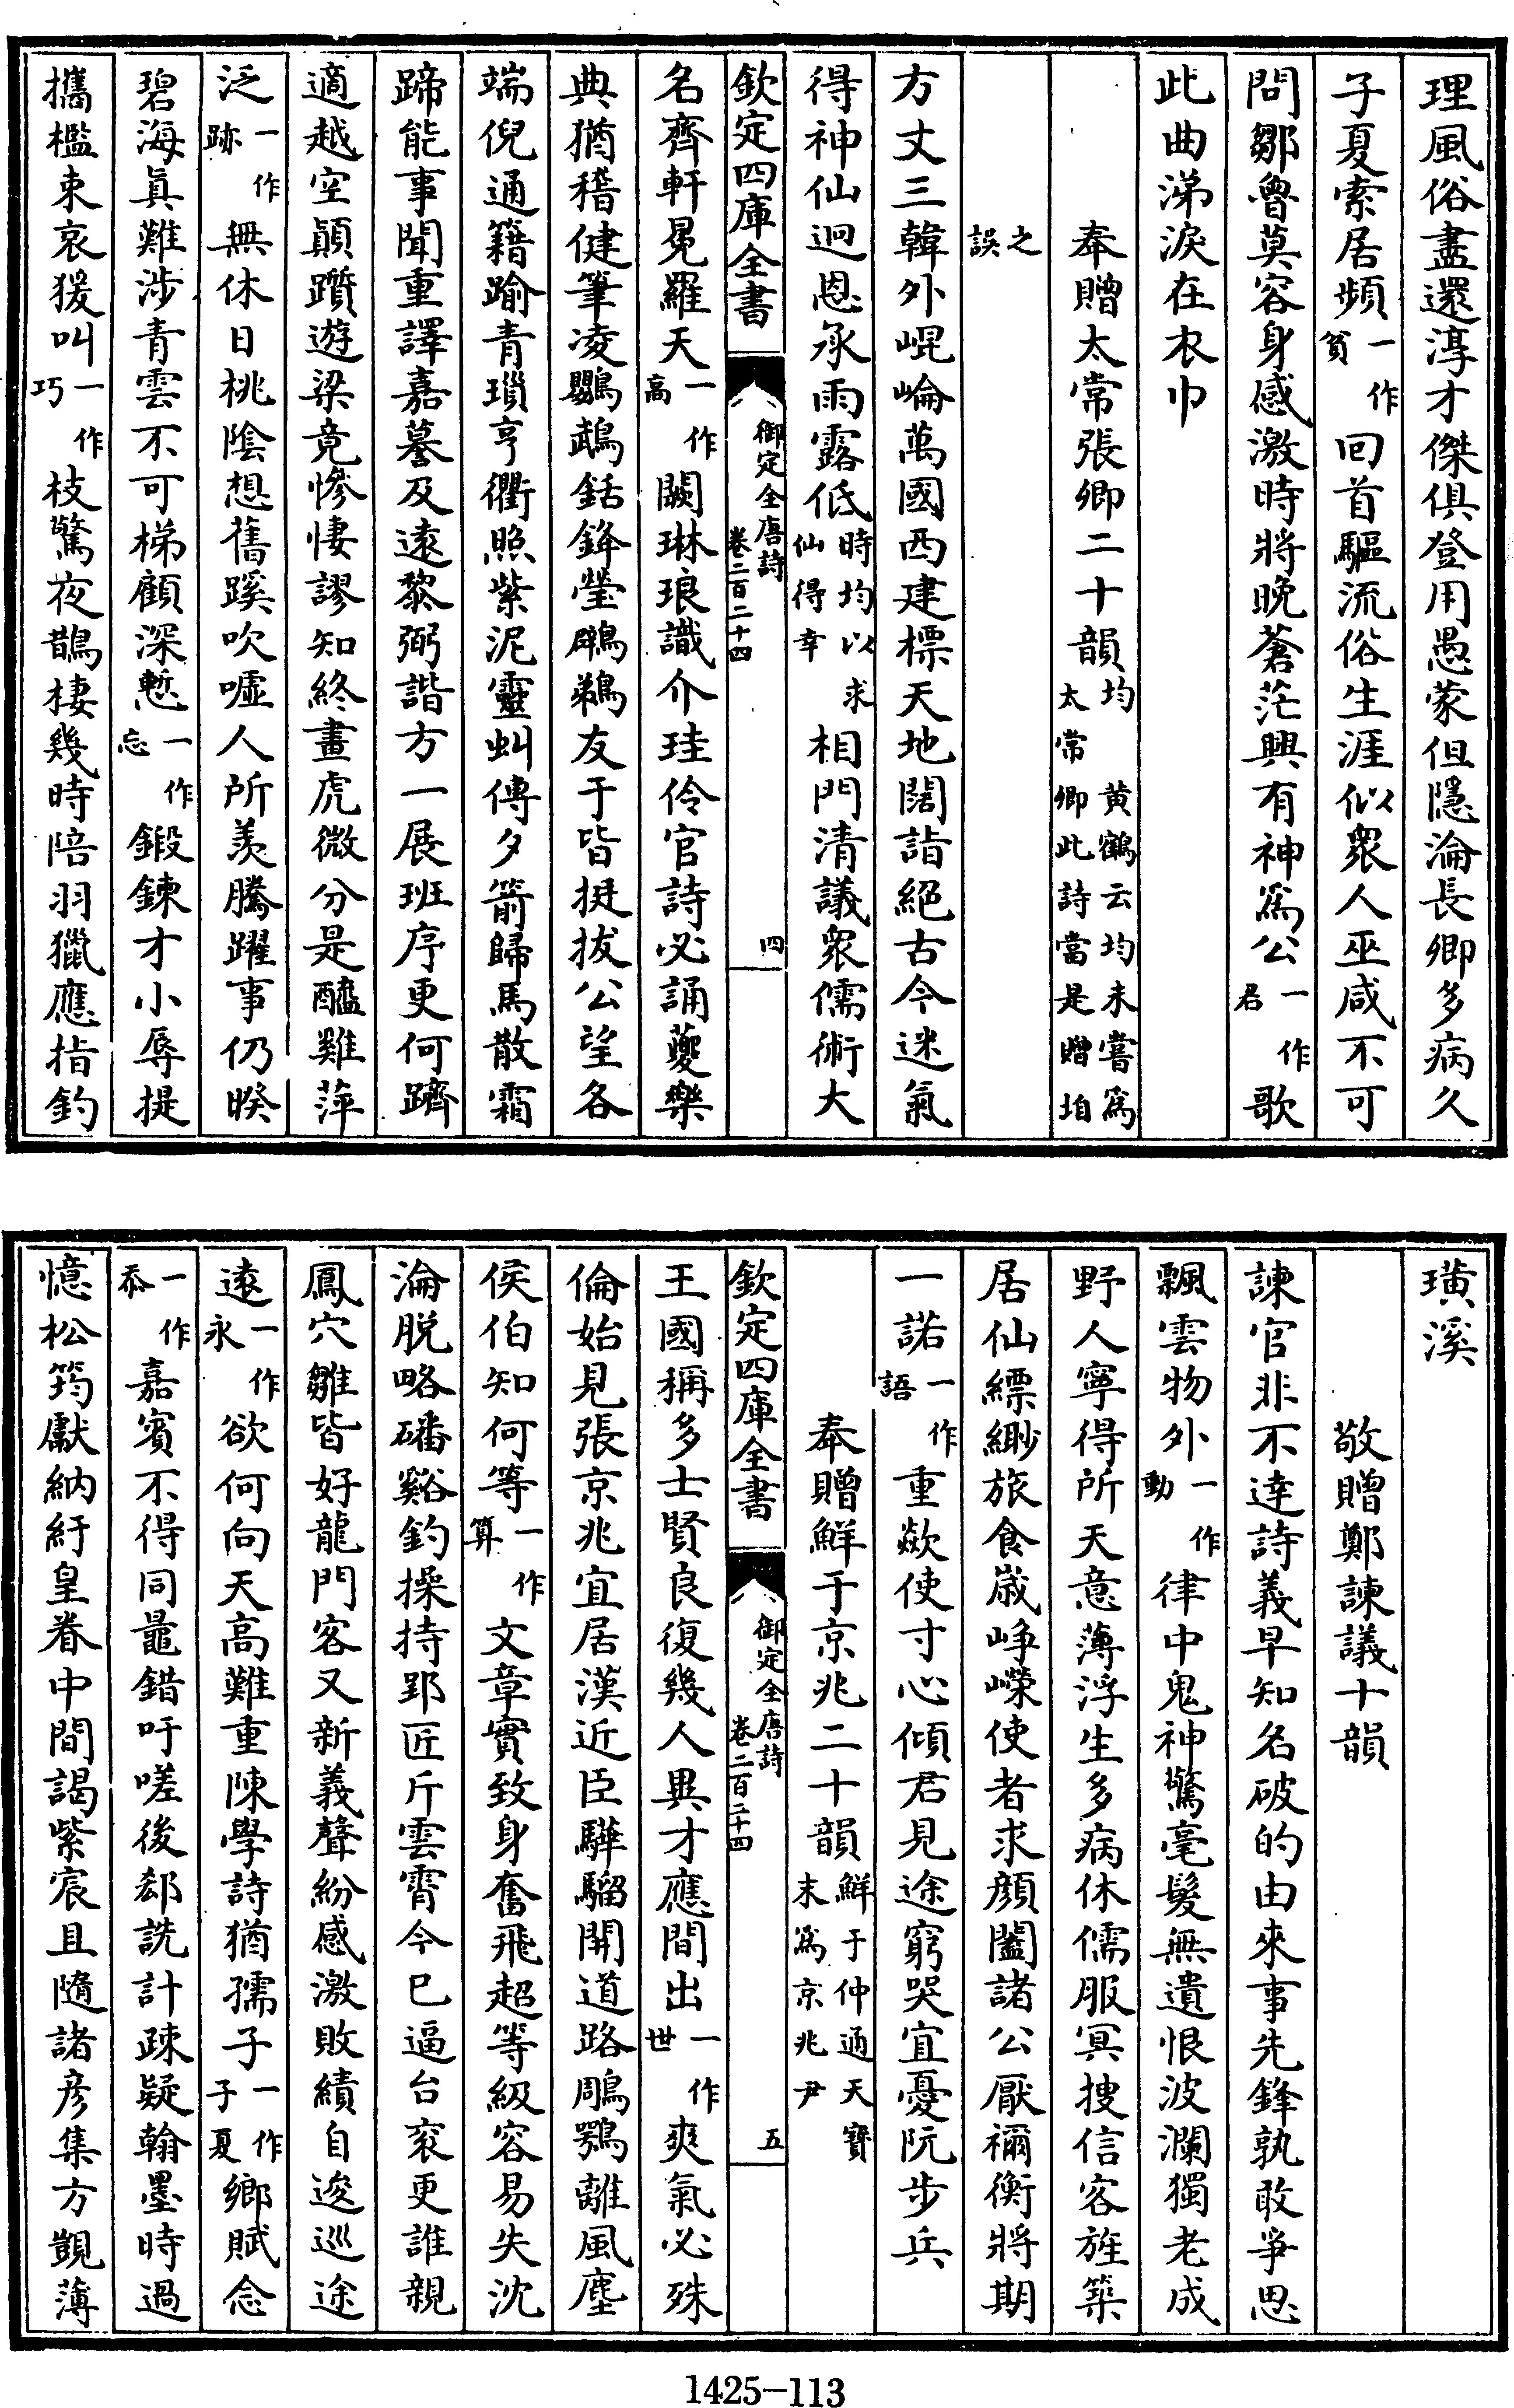 理風俗盡還淳才傑俱登用愚蒙但隱淪長卿多病久
子夏索居頻一作貧回首驅流俗生涯似衆人巫咸不可
問鄒魯莫容身感激時將晚蒼茫興有神爲公一作君歌
此曲涕淚在衣巾
奉贈太常張卿二十韻均黄鶴云均未嘗爲太常卿此詩當是贈垍
之誤
方丈三韓外崐崘萬國西建標天地闊詣絕古今迷氣
得神仙迥恩承雨露低時均以求仙得幸相門清議衆儒術大
欽定四庫全書
御定全唐詩
卷二百二十四
四
名齊軒冕羅天一作高闕琳琅識介珪伶官詩必誦夔樂
典猶稽健筆凌鸚鵡銛鋒瑩鸊鵜友于皆挺拔公望各
端倪通籍踰青瑣亨衢照紫泥靈虬傳夕箭歸馬散霜
蹄能事聞重譯嘉謩及遠黎弼諧方一展班序更何躋
適越空顛躓遊梁竟慘悽謬知終畫虎微分是醯雞萍
泛一作跡無休日桃陰想舊蹊吹噓人所羡騰躍事仍暌
碧海真難涉青雲不可梯顧深慙一作忘鍛鍊才小辱提
攜檻束哀猨叫一作巧枝驚夜鵲棲幾時陪羽獵應指釣
璜溪
敬贈鄭諫議十韻
諫官非不達詩義早知名破的由來事先鋒孰敢爭思
飄雲物外一作動律中鬼神驚毫髮無遺恨波瀾獨老成
野人寧得所天意薄浮生多病休儒服冥搜信客旌築
居仙縹緲旅食歲崢嶸使者求顔闔諸公厭禰衡將期
一諾一作語重歘使寸心傾君見途窮哭宜憂阮步兵
奉贈鮮于京兆二十韻鮮于仲通天寶末爲京兆尹
欽定四庫全書
御定全唐詩
卷二百二十四
五
王國稱多士賢良復幾人異才應間出一作世爽氣必殊
倫始見張京兆宜居漢近臣驊騮開道路鵰鶚離風塵
侯伯知何等一作算文章實致身奮飛超等級容易失沈
淪脱略磻谿釣操持郢匠斤雲霄今已逼台衮更誰親
鳳穴雛皆好龍門客又新義聲紛感激敗績自逡巡途
遠一作永欲何向天高難重陳學詩猶孺子一作子夏鄉賦念
一作忝嘉賓不得同鼂錯吁嗟後郄詵計疎疑翰墨時過
憶松筠獻納紆皇眷中間謁紫宸且隨諸彥集方覬薄
1425-113